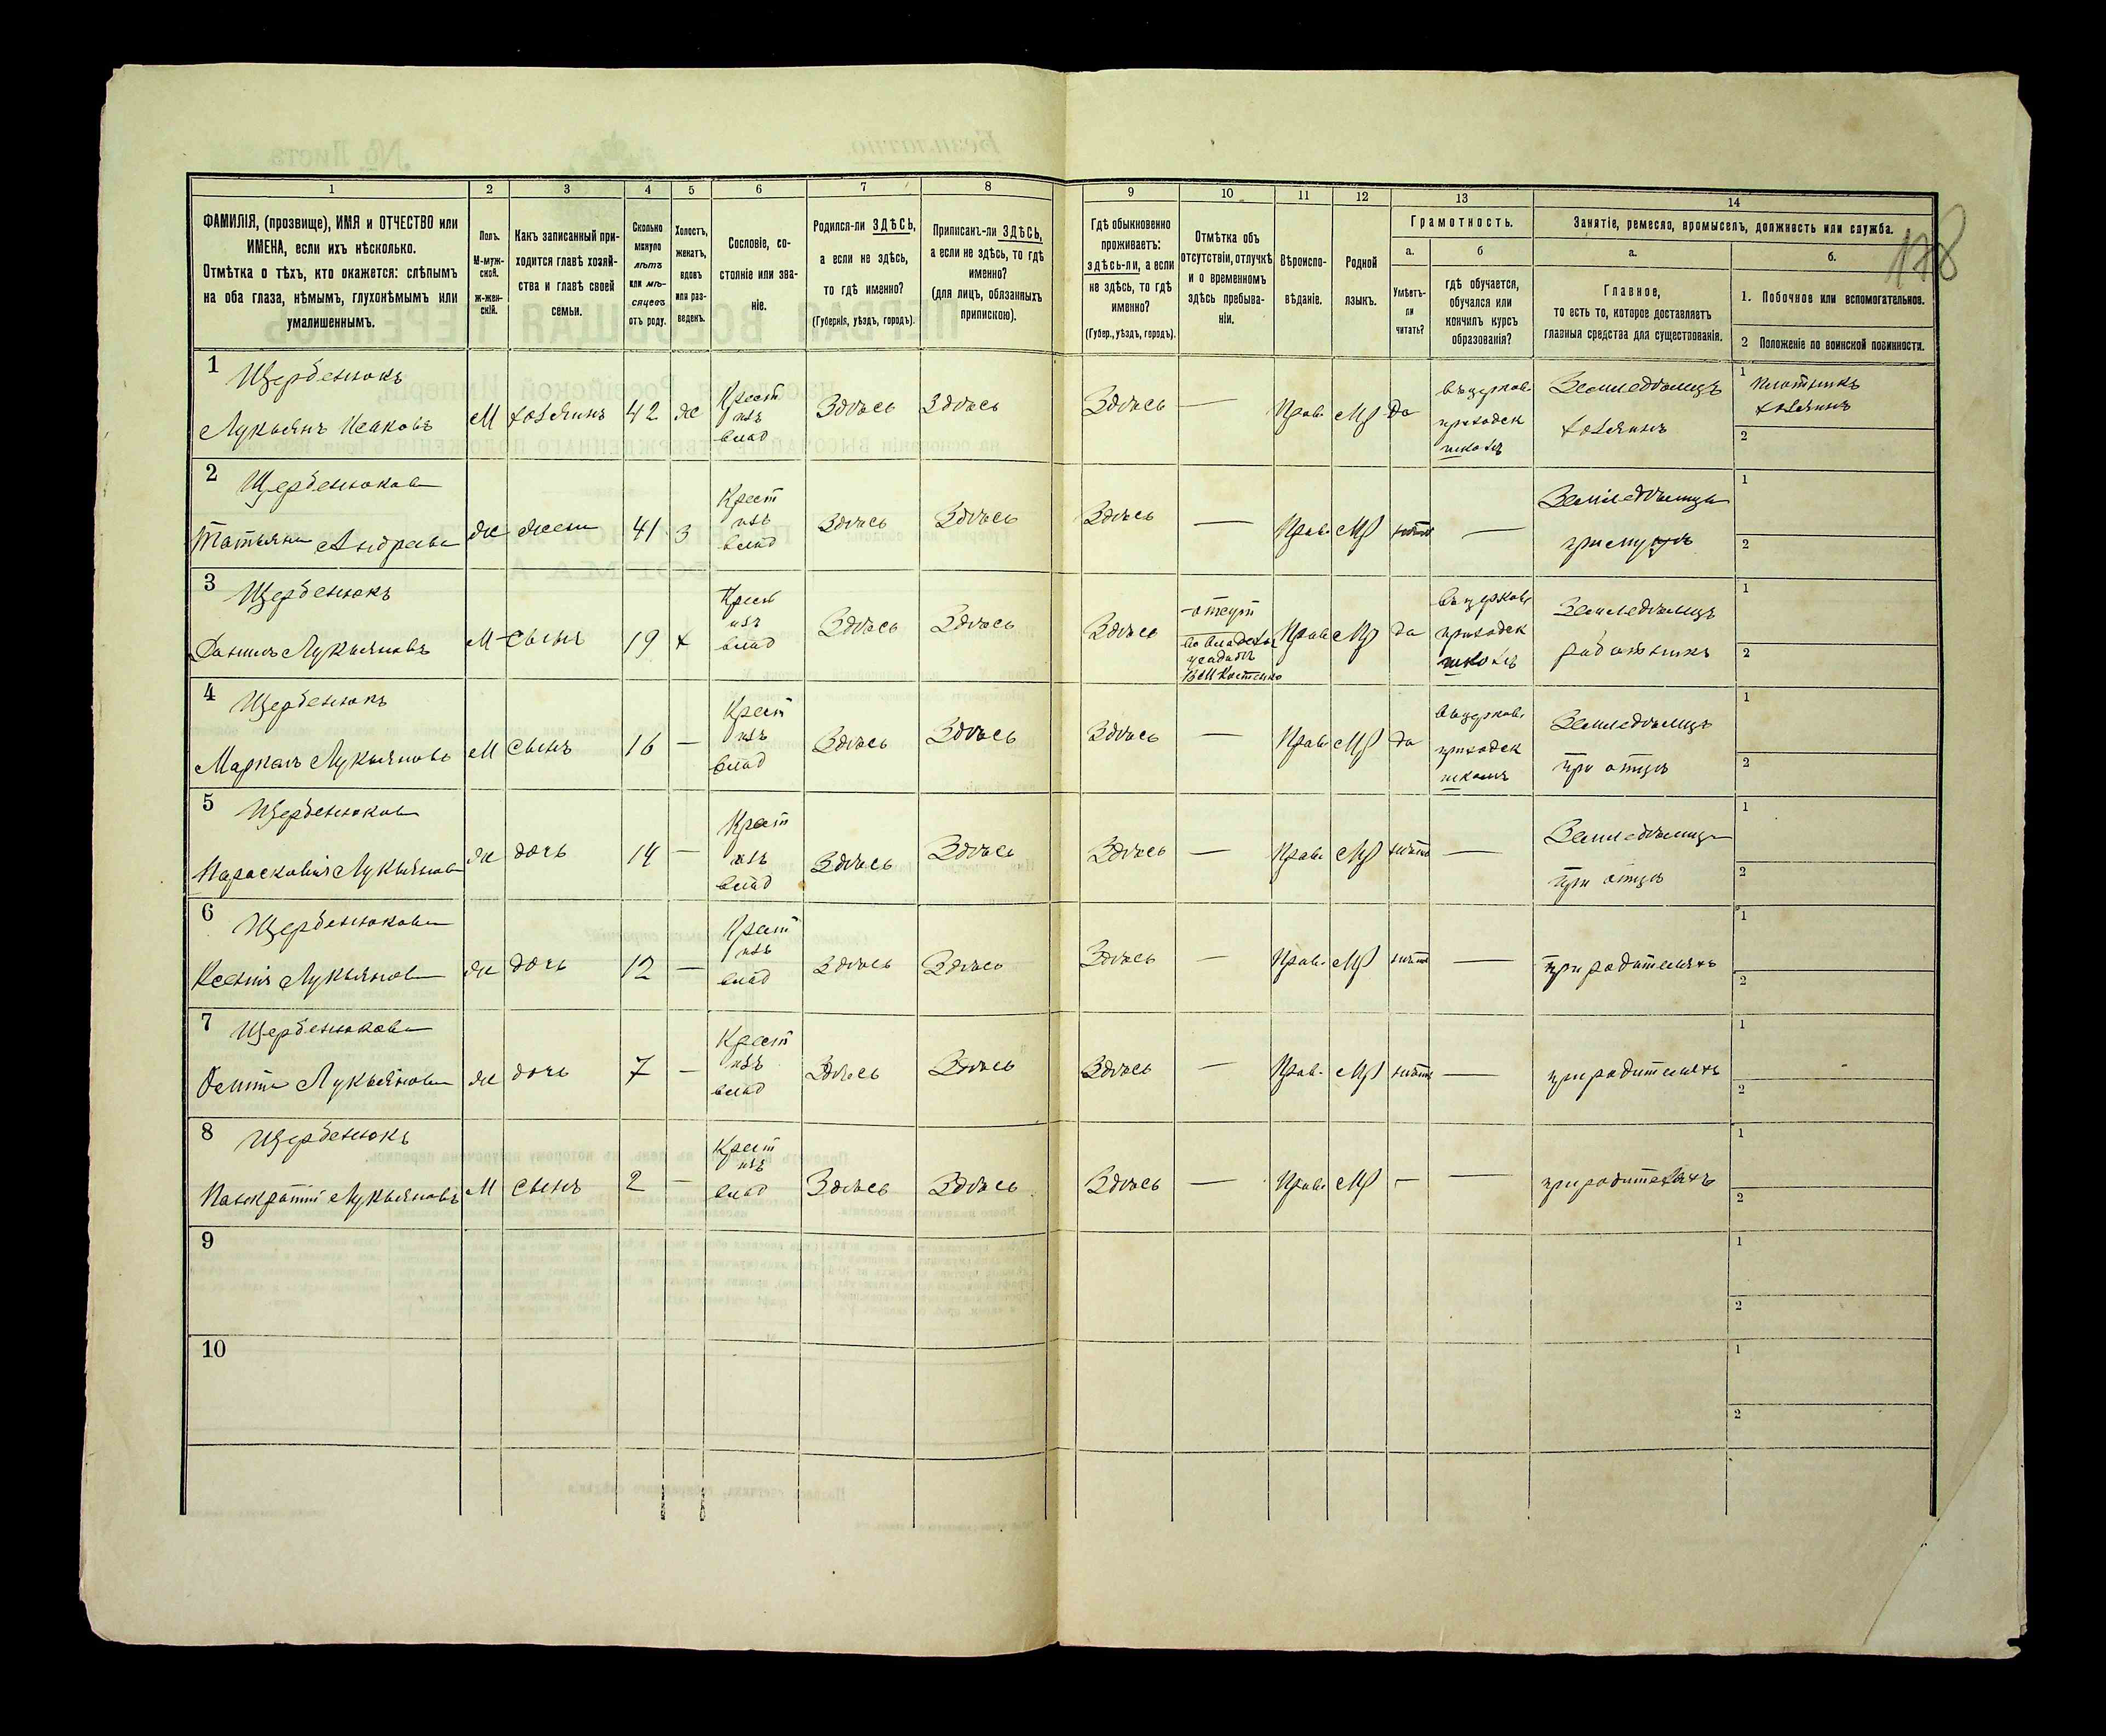 178
1 2 3 4 5 6 7 8 9 10 11 12 13 14
ФАМИЛІЯ, (прозвище), ИМЯ и ОТЧЕСТВО или
ИМЕНА, если ихъ нѣсколько.
Отмѣтка о тѣхъ, кто окажется: слѣпымъ
на оба глаза, нѣмымъ, глухонѣмымъ или
умалишеннымъ.
Полъ.
М-муж-
ской.
ж-жен-
скій.
Какъ записанный при-
ходится главѣ хозяй-
ства и главѣ своей
семьи.
Сколько
минуло
лѣтъ
или мѣ-
сяцевъ
отъ роду.
Холостъ,
женатъ,
вдовъ
или раз-
веденъ.
Сословіе, со-
стояніе или зва-
ніе.
Родился-ли ЗДѢСЬ,
а если не здѣсь,
то гдѣ именно?
(Губернія, уѣздъ, городъ).
Приписанъ-ли ЗДѢСЬ,
а если не здѣсь, то гдѣ
именно?
(для лицъ, обязанныхъ
припискою).
Гдѣ обыкновенно
проживаетъ:
здѣсь-ли, а если
не здѣсь, то гдѣ
именно?
(Губер., уѣздъ, городъ).
Отмѣтка объ
отсутствіи, отлучкѣ
и о временномъ
здѣсь пребыва-
ніи.
Вѣроиспо-
вѣданіе.
Родной
языкъ.
Грамотность.
а.
Умѣетъ-
ли
читать?
б
гдѣ обучается,
обучался или
кончилъ курсъ
образованія?
Занятіе, ремесло, промыселъ, должность или служба.
а.
Главное,
то есть то, которое доставляетъ
главныя средства для существованія.
б.
1. Побочное или вспомогательное.
2 Положеніе по воинской повинности.
1 Щербенюкъ
Лукьянъ Исаковъ М хозяинъ 42 ж Крест изъ влад Здѣсь Здѣсь Здѣсь — Прав МР да въ церков приходск школѣ Земледѣлецъ хозяинъ 1 плотникъ хозяинъ 2
2 Щербенюкова
Татьяна Андреева ж жена 41 з Крест изъ влад Здѣсь Здѣсь Здѣсь — Прав МР нѣтъ — Земледѣлица при мужѣ 1 2
3 Щербенюкъ
Данилъ Лукьяновъ М сынъ 19 х Крест изъ влад Здѣсь Здѣсь Здѣсь отсут Прав МР да въ церков приходск школѣ Земледѣлецъ работникъ 1 2
4 Щербенюкъ
Маркелъ Лукьяновъ М сынъ 16 — Крест изъ влад Здѣсь Здѣсь Здѣсь — Прав МР да въ церков приходск школѣ Земледѣлецъ при отцѣ 1 2
5 Щербенюкова
Парасковія Лукьянова ж дочь 14 — Крест изъ влад Здѣсь Здѣсь Здѣсь — Прав МР нѣтъ — Земледѣлица при отцѣ 1 2
6 Щербенюкова
Ксенія Лукьянова ж дочь 12 — Крест изъ влад Здѣсь Здѣсь Здѣсь — Прав МР нѣтъ — при родителяхъ 1 2
7 Щербенюкова
Лукьянова ж дочь 7 — Крест изъ влад Здѣсь Здѣсь Здѣсь — Прав МР нѣтъ — при родителяхъ 1 2
8 Щербенюкъ
Панкратій Лукьяновъ М сынъ 2 — Крест изъ влад Здѣсь Здѣсь Здѣсь — Прав МР — — при родителяхъ 1 2
9 1 2
10 1 2